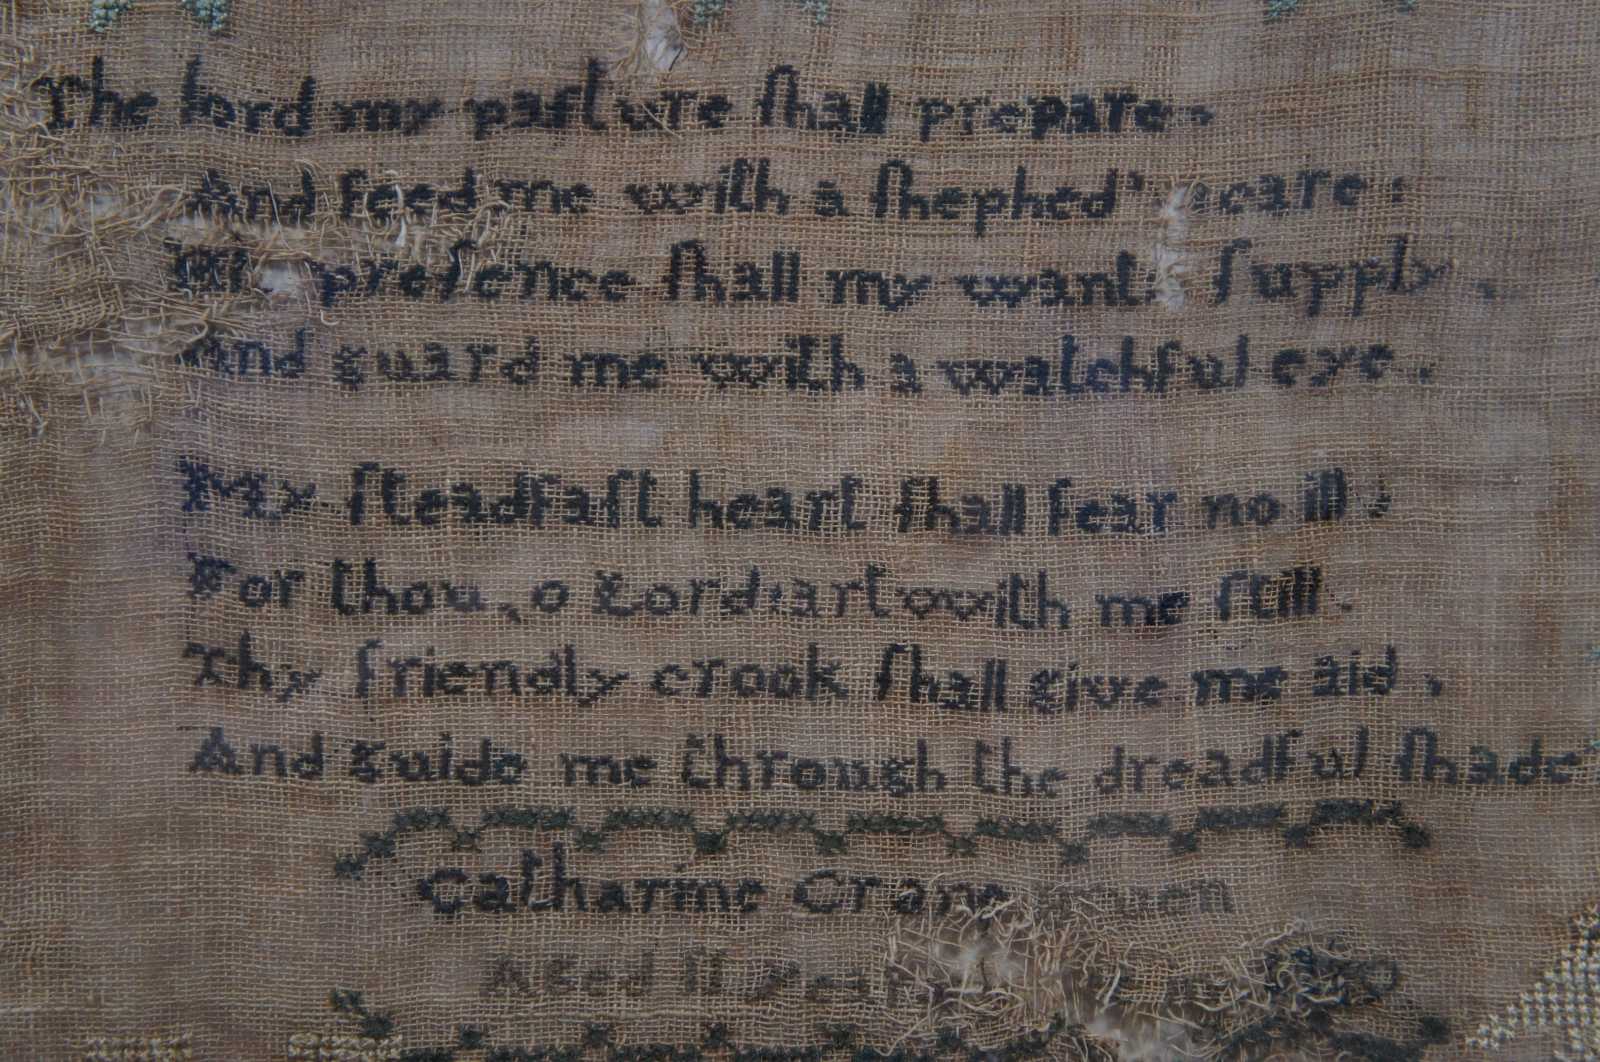 The lord my paſture ſhall prepare.
And feed me with a ſhephed's care:
His preſence ſhall my wants ſupply.
And guard me with a watchful eye.
My ſteadfaſt heart ſhall fear no ill;
For thou, o Lord; art with me ſtill.
Thy friendly crook ſhall give me aid,
And guide me through the dreadful ſhade
Catharine Crane
Aged 11 years